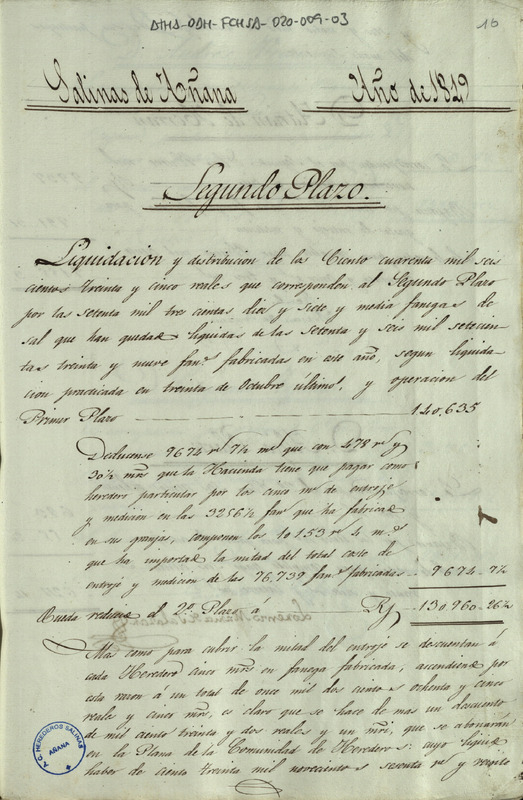 ATHA-DAH-FCHSA-020-009-03
16
Salinas de Añana Año de 1829
Segundo Plazo.
Liquidacion y distribucion de los Ciento cuarenta mil seis
cientos treinta y cinco reales que corresponden al Segundo Plazo
por las setenta mil tres cientas diez y siete y media fanegas de
sal que han quedado liquidas de las Setenta y seis mil setecien-
tas treinta y nueve fan.s fabricadas en este año, segun liquida-
cion practicada en treinta de Octubre ultimo, y operacion del
Primer Plazo 140,635
Deducense 9674 r.s 7½ m.s que con 478 r.s y
30½ mrs que la Hacienda tiene que pagar como
heredero particular por los cinco m.s de entroje
y medicion en las 3256½ fan.s que ha fabricado
en sus granjas, componen los 10153 r.s 4 m.s
que ha importado la mitad del total costo de
entroje y medicion de las 76,739 fan.s fabricadas 9674..7½
Queda reducido el 2.o Plazo á R.s 130960..26½
Mas como para cubrir la mitad del entroje se descuentan á
cada Heredero cinco mrs en fanega fabricada, ascendiendo por
esta razon á un total de once mil dos cientos ochenta y cinco
reales y cinco mrs, es claro que se hace de mas un descuento
de mil ciento treinta y dos reales y un mrs, que se abonarán
en la Plana de la Comunidad de Herederos: cuyo liquido
haber de ciento treinta mil novecientos sesenta r.s y veinte
G. HEREDEROS SALINAS
AÑANA